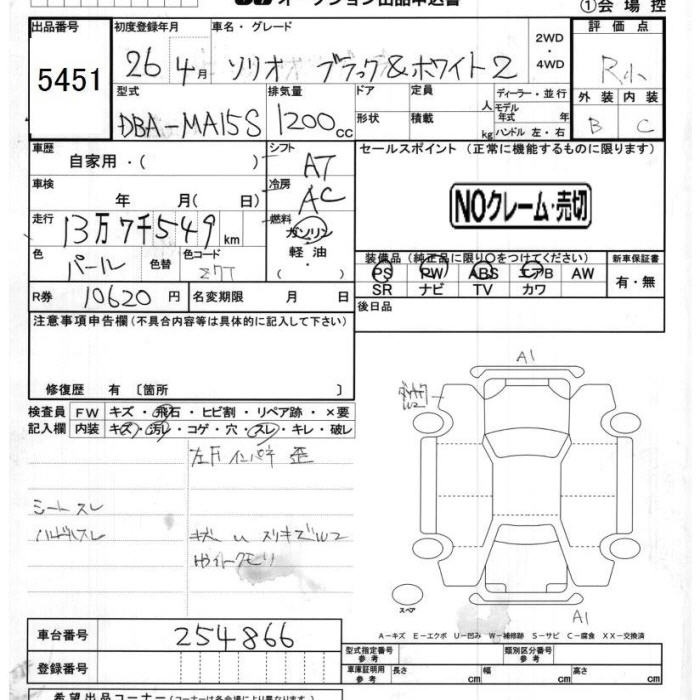 オークション出品申込書
①会場控
出品番号 初度登録年月 車名・グレード 評価点
5451 26年4月 ソリオ ブラック&ホワイト2 2WD・4WD R小
型式 排気量 ドア 定員 人 ディーラー・並行 外装 内装
DBA-MA15S 1200cc 形状 積載 kg モデル年式 年 ハンドル 左・右 B C
車歴 自家用・( ) シフト AT セールスポイント (正常に機能するものに限ります)
車検 年 月( 日) 冷房 AC NOクレーム・売切
走行 13万7千549km 燃料 ガソリン
軽油
( ・ )
色 パール 色替 色コード Z7T 装備品 (純正品に限り○をつけてください) 新車保証書
PS RW ABS エアB AW 有・無
SR ナビ TV カワ
R券 10620円 名変期限 月 日 後日品
注意事項申告欄 (不具合内容等は具体的に記入して下さい)
修復歴 有 〔箇所 〕
A1
検査員 FW キズ・飛石・ヒビ割・リペア跡・×要
記入欄 内装 キズ・汚レ・コゲ・穴・スレ・キレ・破レ
W2
左Fインパネ 歪
シートスレ
ハンドルスレ キズ U スリキズW2
スペア
A1
A-キズ E-エクボ U-凹み W-補修跡 S-サビ C-腐食 XX-交換済
車台番号 254866
型式指定番号 参考 類別区分番号 参考
登録番号 車庫証明用 参考 長さ cm 幅 cm 高さ cm
希望出品コーナー (コーナーは各会場により異なります)